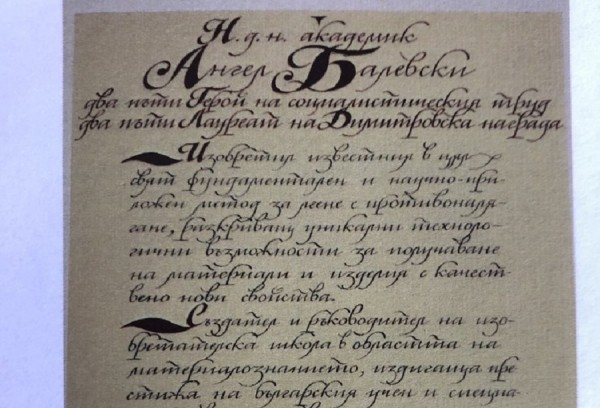 Н.д.н. академик
Ангел Балевски
два пъти Герой на социалистическия труд
два пъти Лауреат на Димитровска награда
Изобретил известния в цял
свят фундаментален и научно-при-
ложен метод за леене с противоналя-
гане, разкриващ уникални техноло-
гични възможности за получаване
на материали и изделия с качест-
вено нови свойства.
Създател и ръководител на изо-
бретателска школа в областта на
материалознанието, издигаща пре
стижа на българския учен и специа-